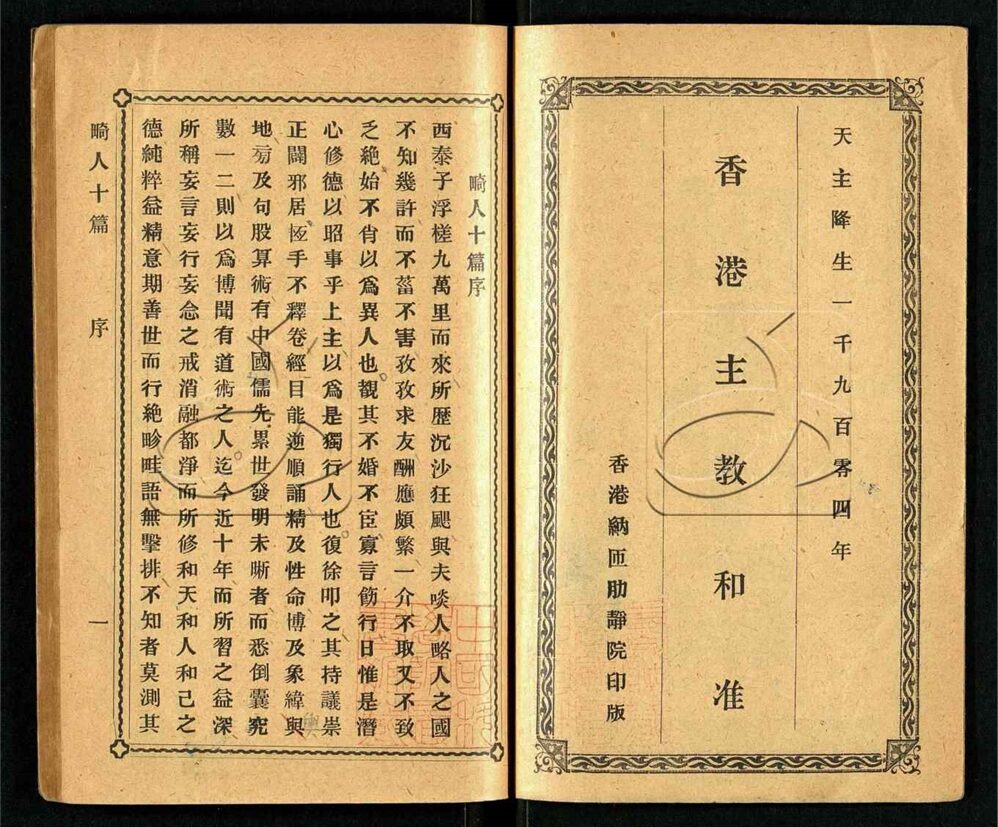 天主降生一千九百零四年
香港主教和准
香港納匝肋靜院印版
畸人十篇序
西泰子浮槎九萬里而來所歷沉沙狂颶與夫啖人略人之國
不知幾許而不菑不害孜孜求友酬應頗繁一介不取又不致
乏絶始不肖以爲異人也覩其不婚不宦寡言飭行日惟是潛
心修德以昭事乎上主以爲是獨行人也復徐叩之其持議崇
正闢邪居恆手不釋卷經目能逆順誦精及性命博及象緯輿
地旁及句股算術有中國儒先累世發明未晰者而悉倒囊究
數一二則以爲博聞有道術之人迄今近十年而所習之益深
所稱妄言妄行妄念之戒消融都淨而所修和天和人和己之
德純粹益精意期善世而行絶畛畦語無擊排不知者莫測其
畸人十篇 序 一